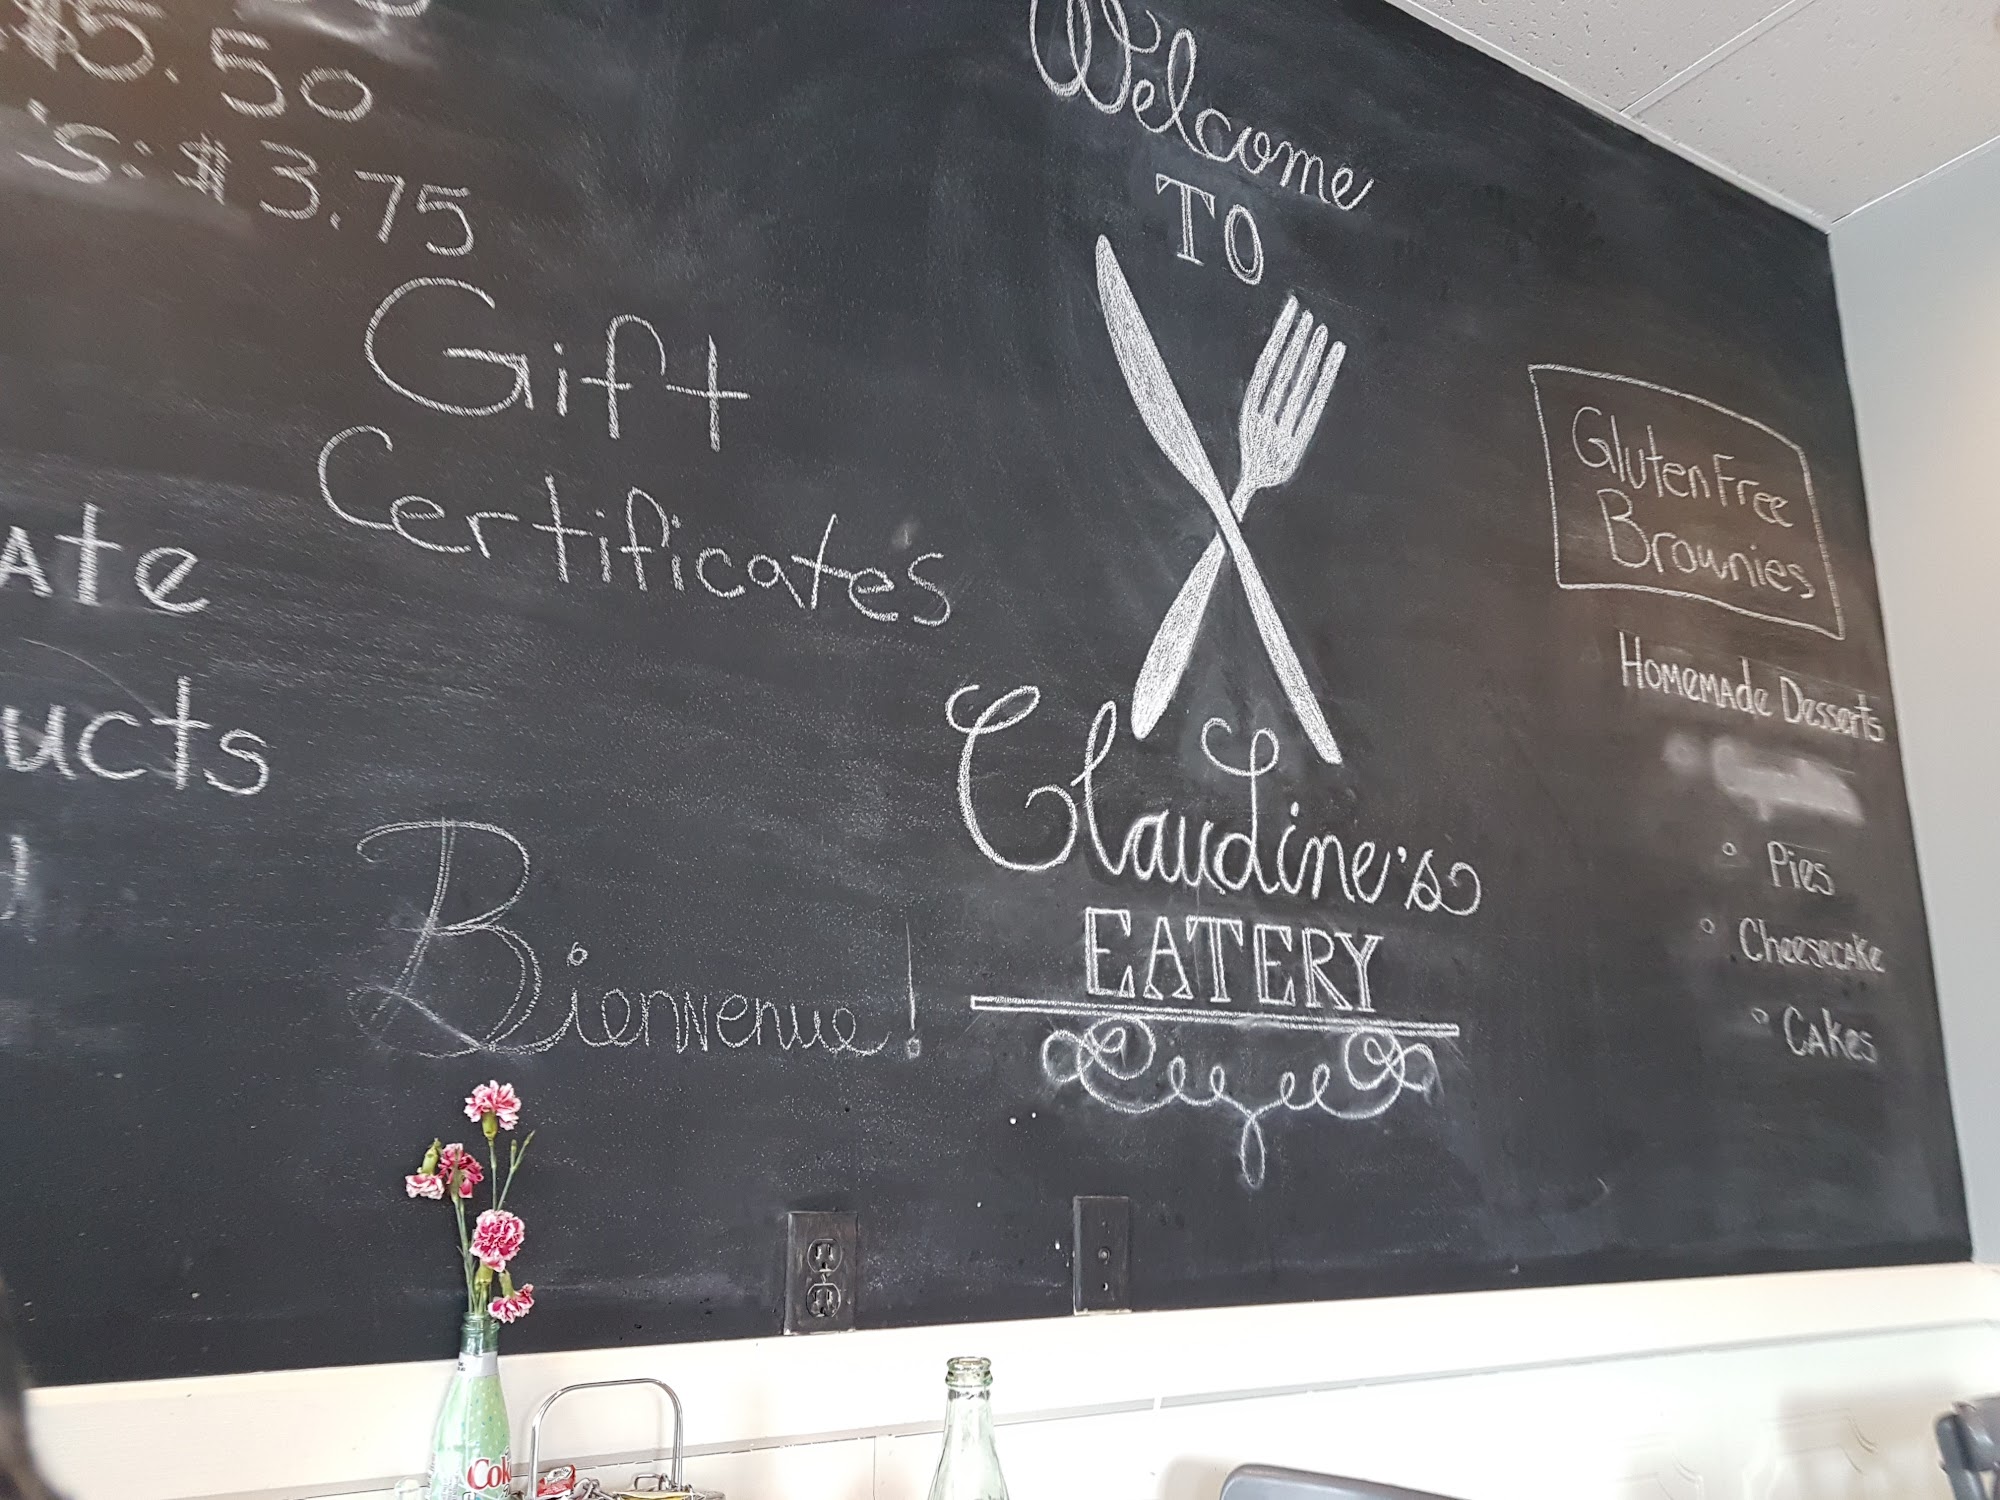 $5.50
's: $3.75
Gift
Certificate's
Ate
ucts
Bienvenue!
Welcome
TO
Claudine's
EATERY
Gluten Free
Brownies
Homemade Desserts
Pies
Cheesecake
Cakes
Cok